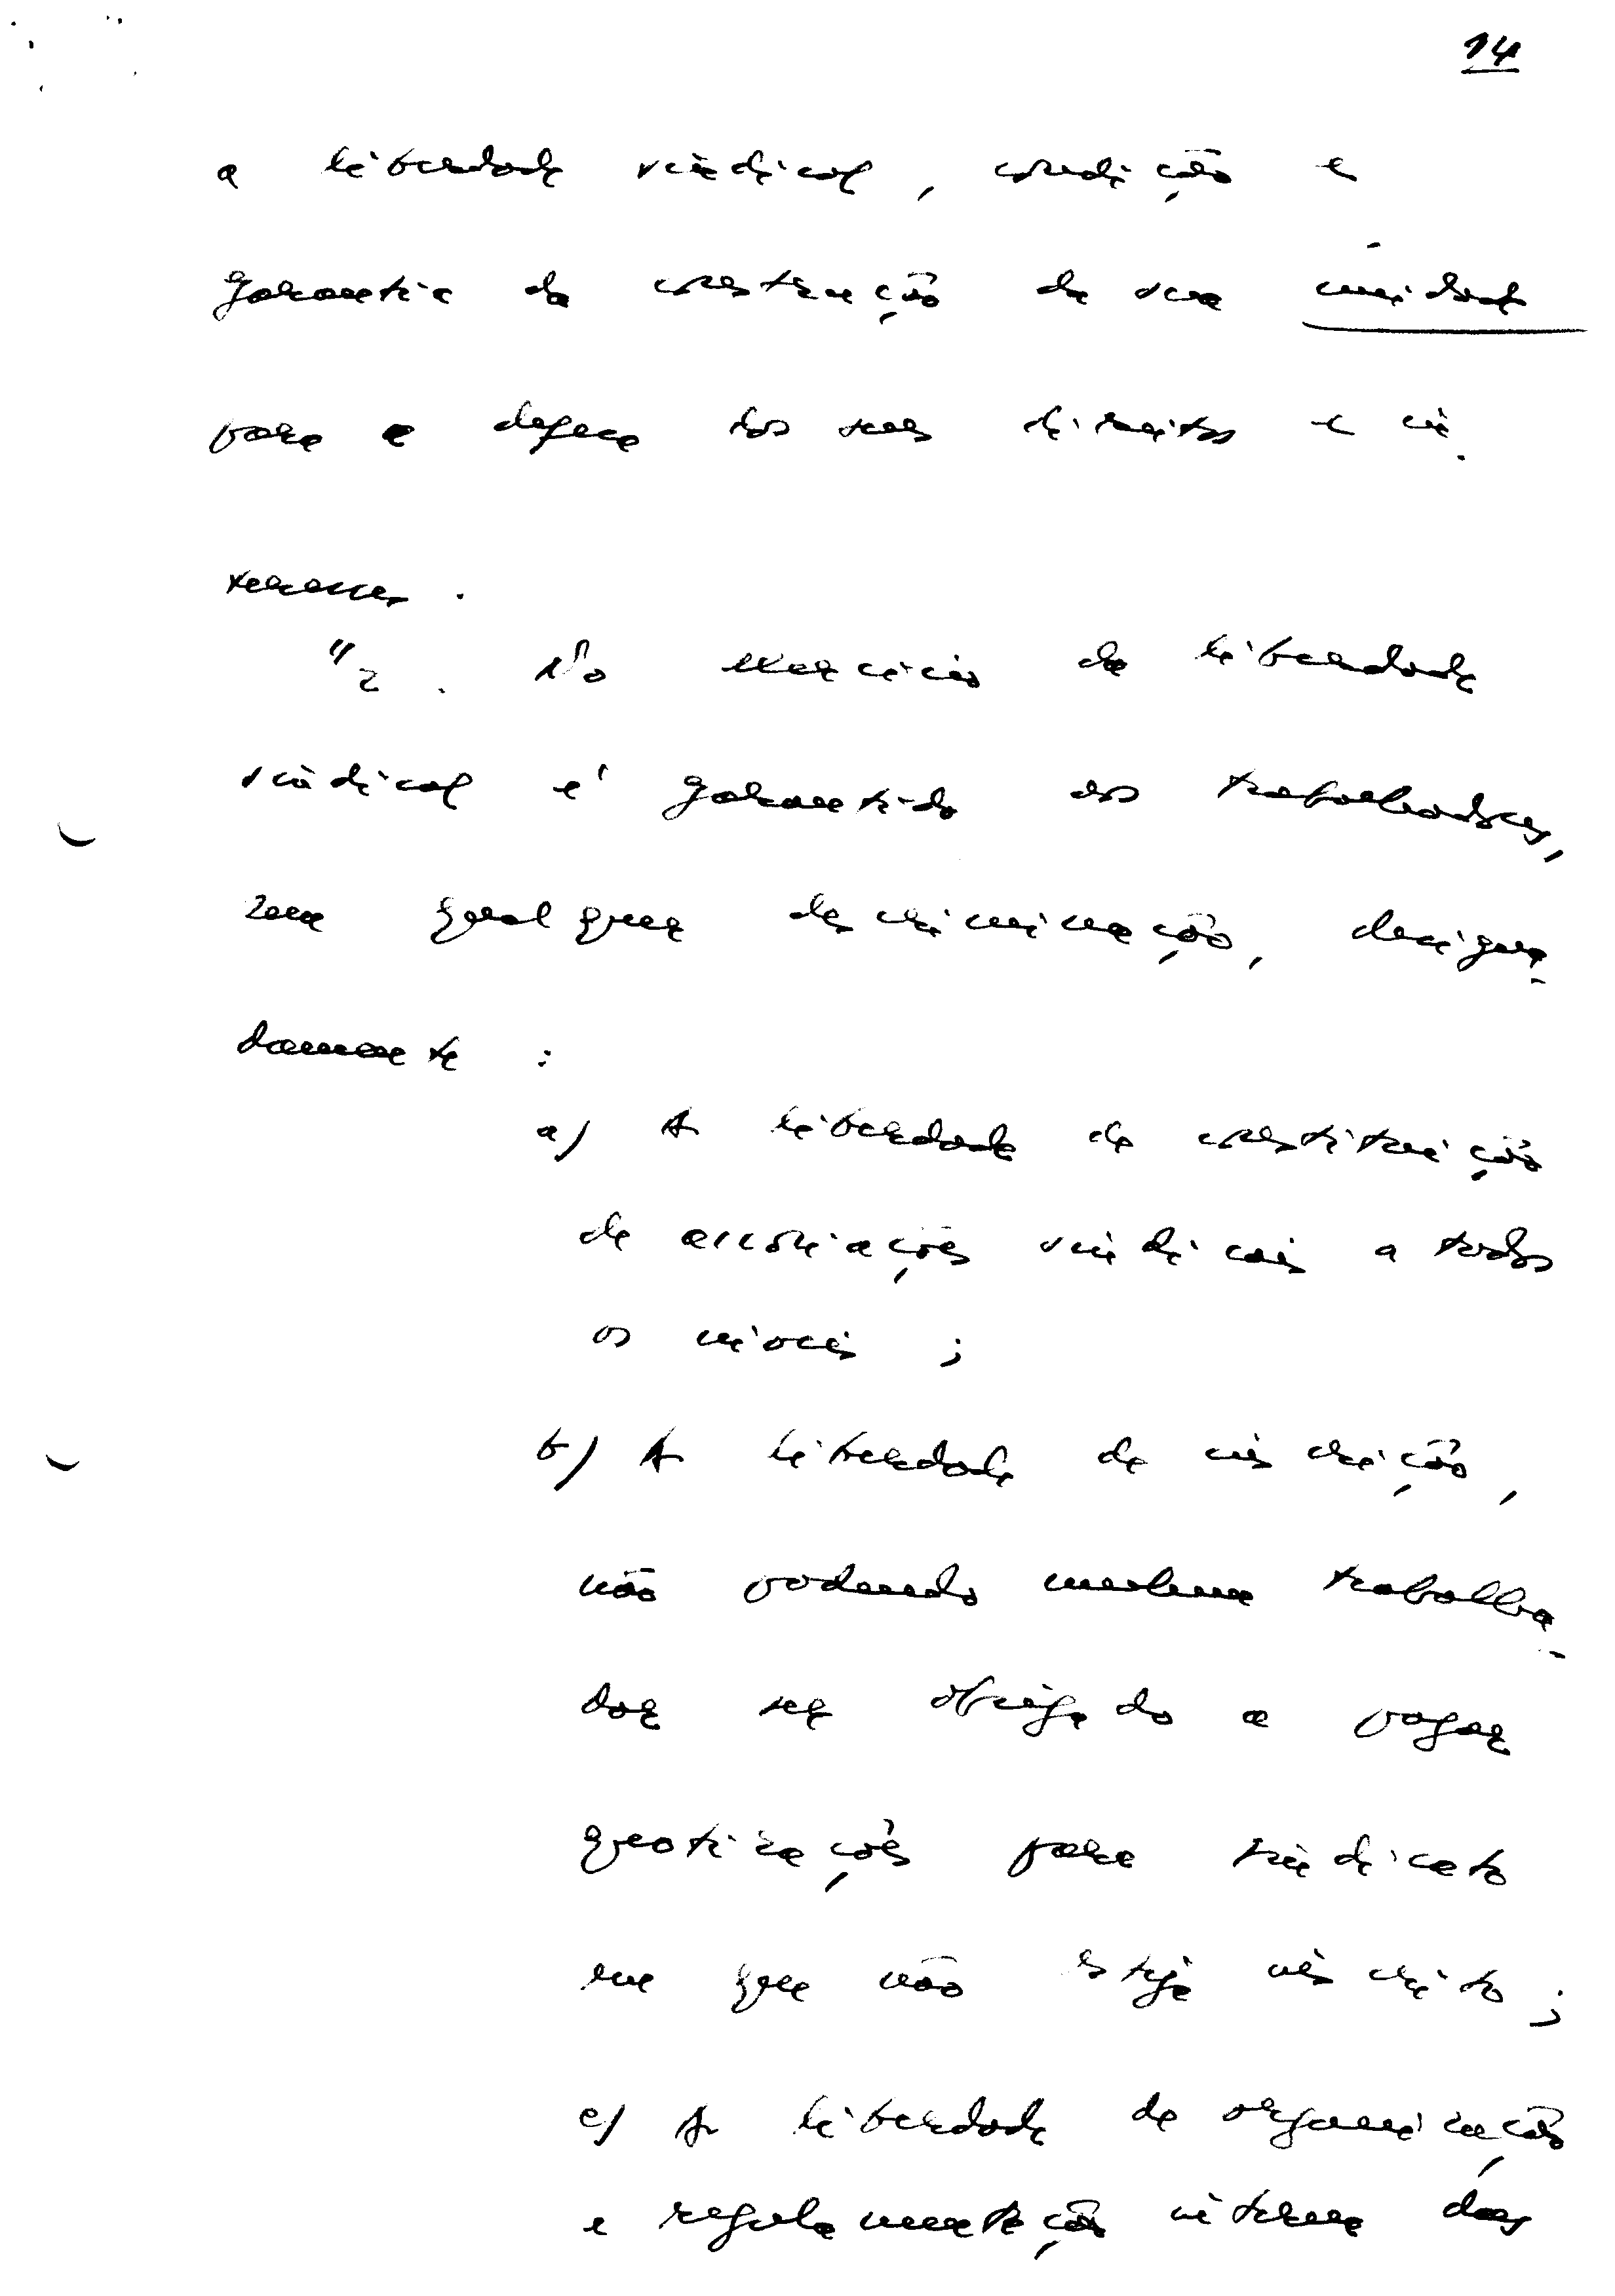 14
a liberdade sindical, condição e
garantia da construção da sua unidade
para a defesa dos seus direitos e in-
teresses.
"2. No exercício da liberdade
sindical é garantido aos trabalhadores,
sem qualquer descriminação, designa-
damente:
a) A liberdade de constituição
de associações sindicais a todos
os níveis;
b) A liberdade de inscrição,
não podendo nenhum trabalha-
dor ser obrigado a pagar
quotizações para sindicato
em que não esteja inscrito;
c) A liberdade de organização
e regulamentação interna das